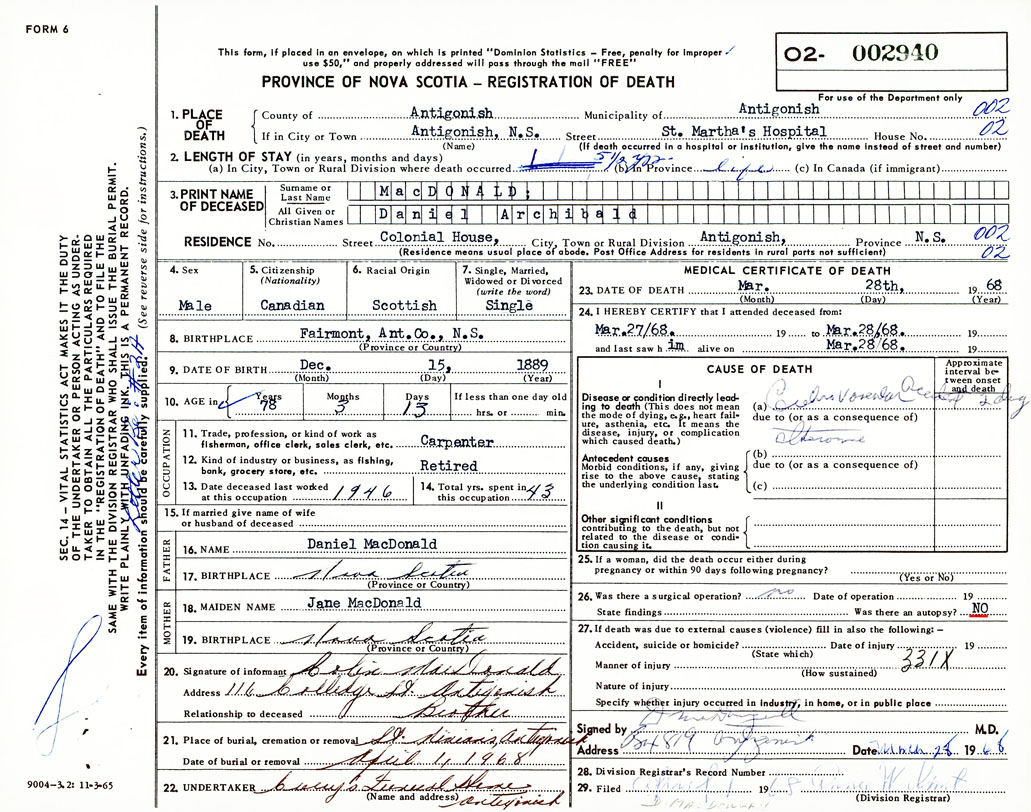 FORM 6
This form, if placed in an envelope, on which is printed "Dominion Statistics – Free, penalty for improper
use $50," and properly addressed will pass through the mail "FREE"
PROVINCE OF NOVA SCOTIA – REGISTRATION OF DEATH
02- 002940
For use of the Department only
1. PLACE OF DEATH
County of Antigonish Municipality of Antigonish 002
If in City or Town Antigonish, N.S. Street St. Martha's Hospital House No. 02
(Name) (If death occurred in a hospital or institution, give the name instead of street and number)
2. LENGTH OF STAY (in years, months and days)
(a) In City, Town or Rural Division where death occurred 5 1/2 yrs (b) In Province life (c) In Canada (if immigrant)
3. PRINT NAME OF DECEASED
Surname or Last Name MacDONALD,
All Given or Christian Names Daniel Archibald
RESIDENCE No. Street Colonial House, City, Town or Rural Division Antigonish, Province N.S. 002
(Residence means usual place of abode. Post Office Address for residents in rural parts not sufficient) 02
4. Sex Male
5. Citizenship (Nationality) Canadian
6. Racial Origin Scottish
7. Single, Married, Widowed or Divorced (write the word) Single
8. BIRTHPLACE Fairmont, Ant.Co., N.S.
(Province or Country)
9. DATE OF BIRTH Dec. 15, 1889
(Month) (Day) (Year)
10. AGE in Years 78 Months 3 Days 13 If less than one day old hrs. or min.
OCCUPATION
11. Trade, profession, or kind of work as fisherman, office clerk, sales clerk, etc. Carpenter
12. Kind of industry or business, as fishing, bank, grocery store, etc. Retired
13. Date deceased last worked at this occupation 1946
14. Total yrs. spent in this occupation 43
15. If married give name of wife or husband of deceased
FATHER
16. NAME Daniel MacDonald
17. BIRTHPLACE Nova Scotia
(Province or Country)
MOTHER
18. MAIDEN NAME Jane MacDonald
19. BIRTHPLACE Nova Scotia
(Province or Country)
20. Signature of informant Colin MacDonald
Address 116 College St. Antigonish
Relationship to deceased Brother
21. Place of burial, cremation or removal St. Ninians, Antigonish
Date of burial or removal April 1, 1968
22. UNDERTAKER
(Name and address) Antigonish
MEDICAL CERTIFICATE OF DEATH
23. DATE OF DEATH Mar. 28th, 1968
(Month) (Day) (Year)
24. I HEREBY CERTIFY that I attended deceased from:
Mar.27/68. 19 to Mar.28/68. 19
and last saw him alive on Mar.28/68. 19
CAUSE OF DEATH
Approximate interval between onset and death
I
Disease or condition directly leading to death (This does not mean the mode of dying, e.g., heart failure, asthenia, etc. It means the disease, injury, or complication which caused death.)
(a) Cerebrovascular Accident
due to (or as a consequence of)
Antecedent causes
Morbid conditions, if any, giving rise to the above cause, stating the underlying condition last.
(b)
due to (or as a consequence of)
(c)
II
Other significant conditions
contributing to the death, but not related to the disease or condition causing it.
25. If a woman, did the death occur either during pregnancy or within 90 days following pregnancy?
(Yes or No)
26. Was there a surgical operation? no Date of operation 19
State findings Was there an autopsy? NO
27. If death was due to external causes (violence) fill in also the following: –
Accident, suicide or homicide? Date of injury 19
(State which)
Manner of injury 331X
(How sustained)
Nature of injury
Specify whether injury occurred in industry, in home, or in public place
Signed by M.D.
Address Box 819 Antigonish Date March 28 1968
28. Division Registrar's Record Number
29. Filed 1968
(Division Registrar)
SEC. 14 – VITAL STATISTICS ACT MAKES IT THE DUTY
OF THE UNDERTAKER OR PERSON ACTING AS UNDER-
TAKER TO OBTAIN ALL THE PARTICULARS REQUIRED
IN THE "REGISTRATION OF DEATH" AND TO FILE THE
SAME WITH THE DIVISION REGISTRAR WHO SHALL ISSUE THE BURIAL PERMIT.
WRITE PLAINLY WITH UNFADING INK. THIS IS A PERMANENT RECORD.
Every item of information should be carefully supplied. (See reverse side for instructions.)
9004–3.2: 11-3-65